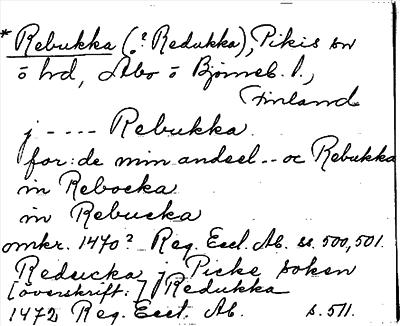 * Rebukka (? Redukka), Pikis sn
o hd, Åbo o Björneb. l.,
Finland
j ---- Rebukka
for: de min andeel -- oc Rebukka
in Rebocka
in Rebucka
omkr. 1470? Reg. Eccl. Ab. ss. 500, 501.
Reducka j Picke soken
[överskrift:] Redukka
1472 Reg. Eccl. Ab. s. 511.